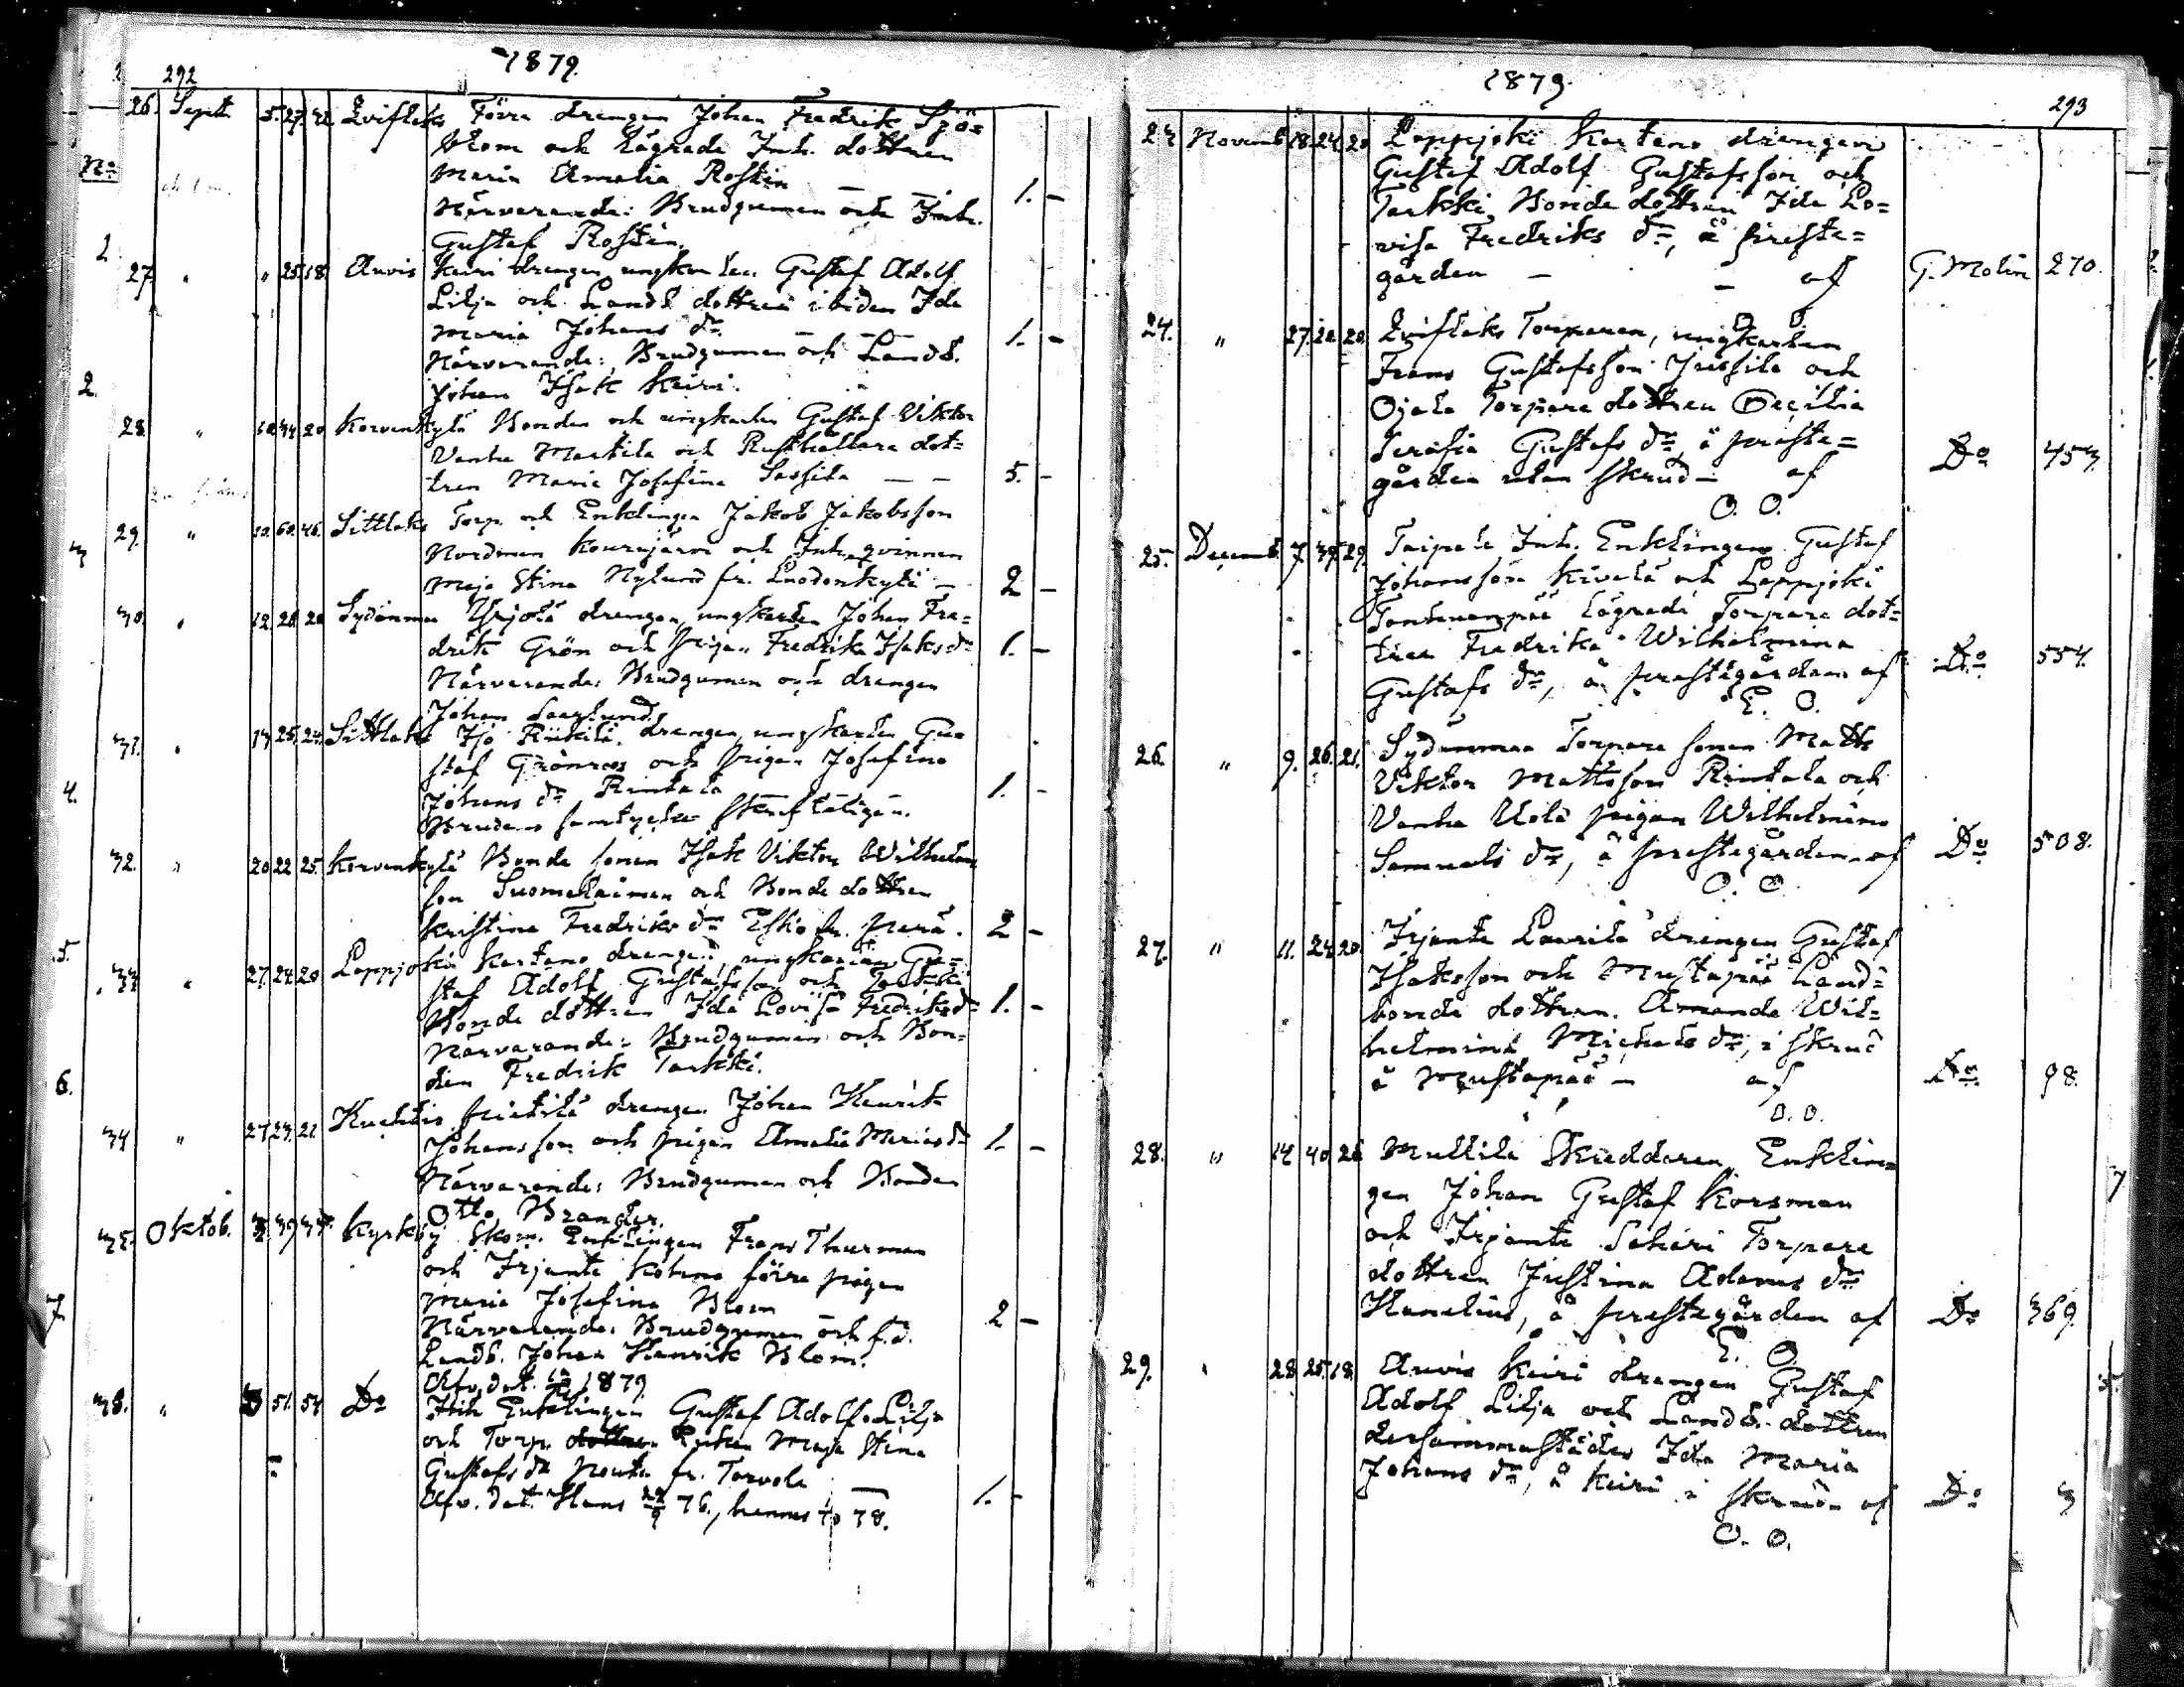 292
1879.
26. Sept. 5. 27. 42 Qviflaks Förra drengen Johan Fredrik Sjö=
blom och Lägrade Inh. dottren
Maria Amalia Rostin — — 1. —
Närvarande: Brudgumen och Inh.
Gustaf Rostin.
27. " " 25. 18. Auvis Keiri drengen ungkarlen Gustaf Adolf
Lilja och Landb. dottren ibiden Ida
Maria Johans dr — — — 1. —
Närvarande: Brudgumen och Landb.
Johan Isak Keiri.
28. " 20. Korvenkylä Bonden och ungkarlen Gustaf Viktor
Vanha Markila och Rusthållare dot=
tren Maria Josefina Sassila — — 5. —
29. " 10. 60. 46. Sittlaks Torp. och Enklingen Jakob Jakobsson
Nordman Kournjärvi och Inh. qvinnan
Maja Stina Nylund fr. Luodonkylä — 2 —
30. " 12. 28. 20 Sydänmaa Yrjölä drengen ungkarlen Johan Fre=
drik Grön och pigan Fredrika Isaks dr 1. —
Närvarande: Brudgumen och drengen
Johan Saarlund.
31. " 25. 24. Sittlaks Iso Riikilä drengen ungkarlen Gu=
staf Grönroos och pigan Josefina
Johans dr Rintala 1. —
Brudens samtycke skriftligen.
32. " 20 22 25. Korvenkylä Bonde sonen Isak Viktor Wilhelms
son Suomelainen och Bonde dottren
Kristina Fredriks dr Esko fr. Perä. 2 —
33 " 27. 24. 20 Loppjoki Kartano drengen, ungkarlen Gu=
staf Adolf Gustafsson och Tarkki
Bonde dottren Ida Lovisa Fredriks dr 1. —
Närvarande: Brudgumen och Bon=
den Fredrik Tarkki.
34 " 27 23. 21. Kuchtis Prittilä drengen Johan Henrik
Johansson och pigan Amalia Marias dr 1. —
Närvarande: Brudgumen och Bonden
Otto Brander.
35. Oktob. Kyrkby Skom. Enklingen Frans Thurman
och Irjante Kohna förra pigan
Maria Josefina Blom 2 —
Närvarande: Brudgumen och f.d.
Landb. Johan Henrik Blom.
Afv. dat. 1879.
" 51. 54 Do Itsl. Enklingen Gustaf Adolf Lilja
och Torp. Enkan Maja Stina
Gustafs dr Pouta fr. Torvola
Afv. dat. Hans 76., hennes 78. 1. —
No
1
2.
3
4.
5.
6.
7.
1879.
293
23 Novemb. 18. 24. 20 Loppjoki Kartano drengen
Gustaf Adolf Gustafsson och
Tarkki Bonde dottren Ida Lo=
visa Fredriks dr, å preste=
gården — — af G. Molin 270.
O. O.
24. " 27. 20. Qviflaks Torparen, ungkarlen
Frans Gustafsson Jussila och
Ojala Torpare dottren Cecilia
Serafia Gustafs dr, å preste=
gården utan skrud — af Do 453
O. O.
25. Decemb. 7. 39. 29. Taipale Inh. Enklingen Gustaf
Johansson Kivelä och Loppjoki
Tontunenpää Lägrade Torpare dot=
tren Fredrika Wilhelmina
Gustafs dr, å prestegården af Do 554.
E. O.
26. " 9. 26. 21. Sydänmaa Torpare sonen Matts
Viktor Mattsson Rintala och
Vanha Uola pigan Wilhelmina
Samuels dr, å prestegården af Do 508.
O. O.
27. " 11. 24 20. Irjante Laurila drengen Gustaf
Isaksson och Mustapää Land=
bonde dottren Amanda Wil=
helmina Michels dr, i skrud
å Mustapää — af Do 98.
O. O.
28. " 14 40 26 Mullila Skreddaren, Enklin=
gen Johan Gustaf Korsman
och Irjante Sahari Torpare
dottren Justina Adams dr
Hanelius, å prestegården af Do 369.
E. O.
29. " 28 25. 18. Auvis Keiri drengen Gustaf
Adolf Lilja och Landb. dottren
dersammastädes Ida Maria
Johans dr, å Keiri i skrud af Do 3
O. O.